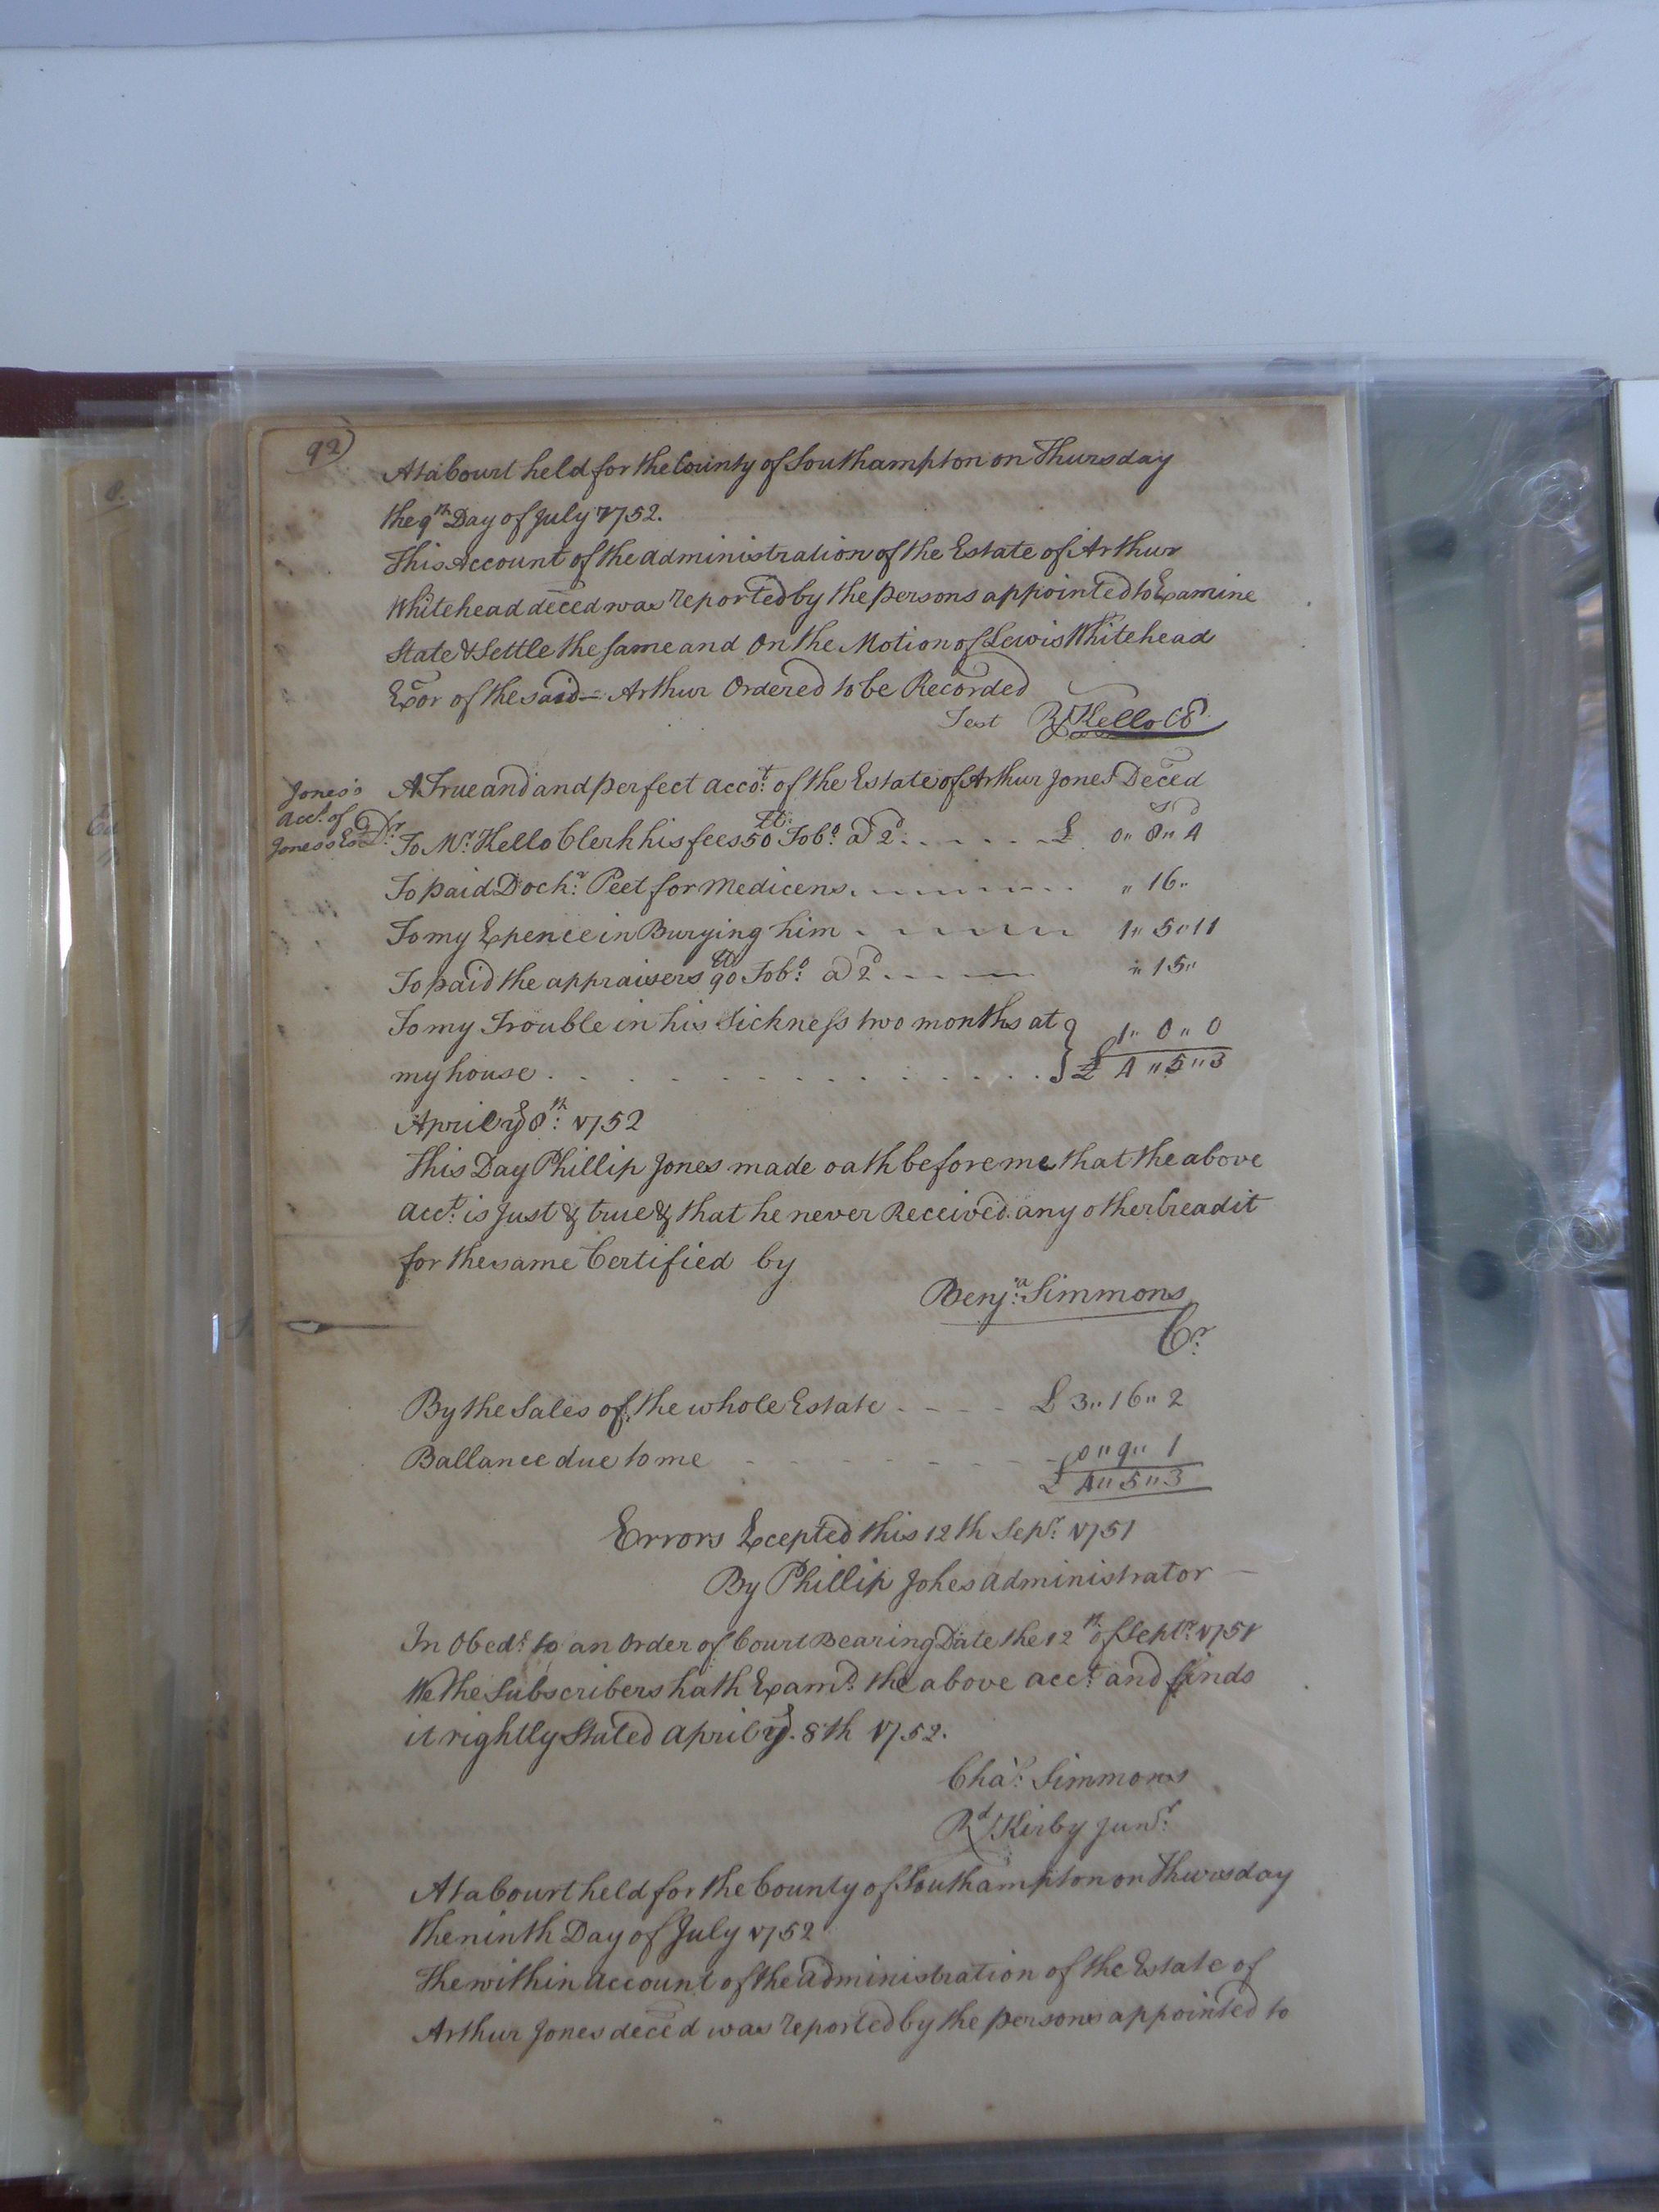 92)
At a Court held for the County of Southampton on Thursday
the 9th Day of July 1752.
This Account of the administration of the Estate of Arthur
Whitehead deced was reported by the persons appointed to Examine
State & Settle the same and On the Motion of Lewis Whitehead
Exor of the said — Arthur Ordered to be Recorded
Test R Kello CC
Jones's
Acct. of
Jones's Es
A True and and perfect accot. of the Estate of Arthur Jones Deced
Dr To Mr. Kello Clerk his fees 50 lb Tobo. a 2d. £ 0" 8" 4
To paid Dockr. Peet for Medicens " 16"
To my Expence in Burying him 1" 5" 11
To paid the appraisers 90 lb Tobo. a 2d " 15"
To my Trouble in his Sickness two months at
my house } 1" 0" 0
£ 4" 5" 3
April ye 8th: 1752
This Day Phillip Jones made oath before me that the above
acct. is Just & true & that he never Received any other Creadit
for the same Certified by
Benja. Simmons
Cr
By the Sales of the whole Estate £ 3" 16" 2
Ballance due to me 0" 9" 1
£ 4" 5" 3
Errors Excepted this 12th Sepr. 1751
By Phillip Jones administrator
In Obedc. to an Order of Court Bearing Date the 12th of Septr. 1751
We the Subscribers hath Examd. the above acct. and finds
it rightly Stated April ye. 8th 1752.
Chas. Simmons
Rd Kirby Junr.
At a Court held for the County of Southampton on Thursday
the ninth Day of July 1752
The within account of the administration of the Estate of
Arthur Jones deced was reported by the persons appointed to